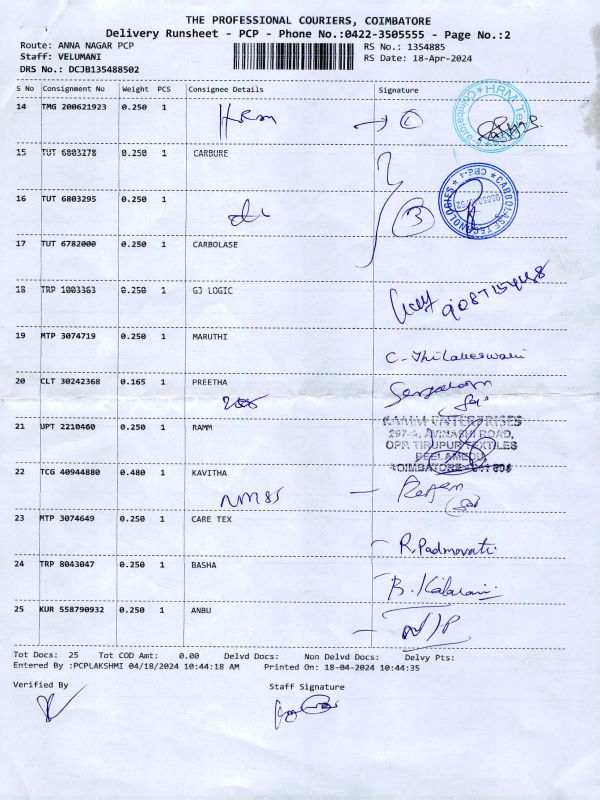 THE PROFESSIONAL COURIERS, COIMBATORE
Delivery Runsheet - PCP - Phone No.:0422-3505555 - Page No.:2
Route: ANNA NAGAR PCP RS No.: 1354885
Staff: VELUMANI RS Date: 18-Apr-2024
DRS No.: DCJB135488502
S No Consignment No Weight PCS Consignee Details Signature
14 TMG 200621923 0.250 1 HRM
15 TUT 6803278 0.250 1 CARBURE
16 TUT 6803295 0.250 1 3
17 TUT 6782000 0.250 1 CARBOLASE
18 TRP 1003363 0.250 1 GJ LOGIC
19 MTP 3074719 0.250 1 MARUTHI
C-Thilakeswari
20 CLT 30242368 0.165 1 PREETHA
21 UPT 2210460 0.250 1 RAMM
RAMM ENTERPRISES
297-A, AVINASHI ROAD,
OPP. TIRUPUR TEXTILES
PEELAMEDU,
COIMBATORE - 641 004
22 TCG 40944880 0.480 1 KAVITHA
23 MTP 3074649 0.250 1 CARE TEX
R.Padmavati
24 TRP 8043047 0.250 1 BASHA
B.Kalarani
25 KUR 558790932 0.250 1 ANBU
Tot Docs: 25 Tot COD Amt: 0.00 Delvd Docs: Non Delvd Docs: Delvy Pts:
Entered By :PCPLAKSHMI 04/18/2024 10:44:18 AM Printed On: 18-04-2024 10:44:35
Verified By Staff Signature